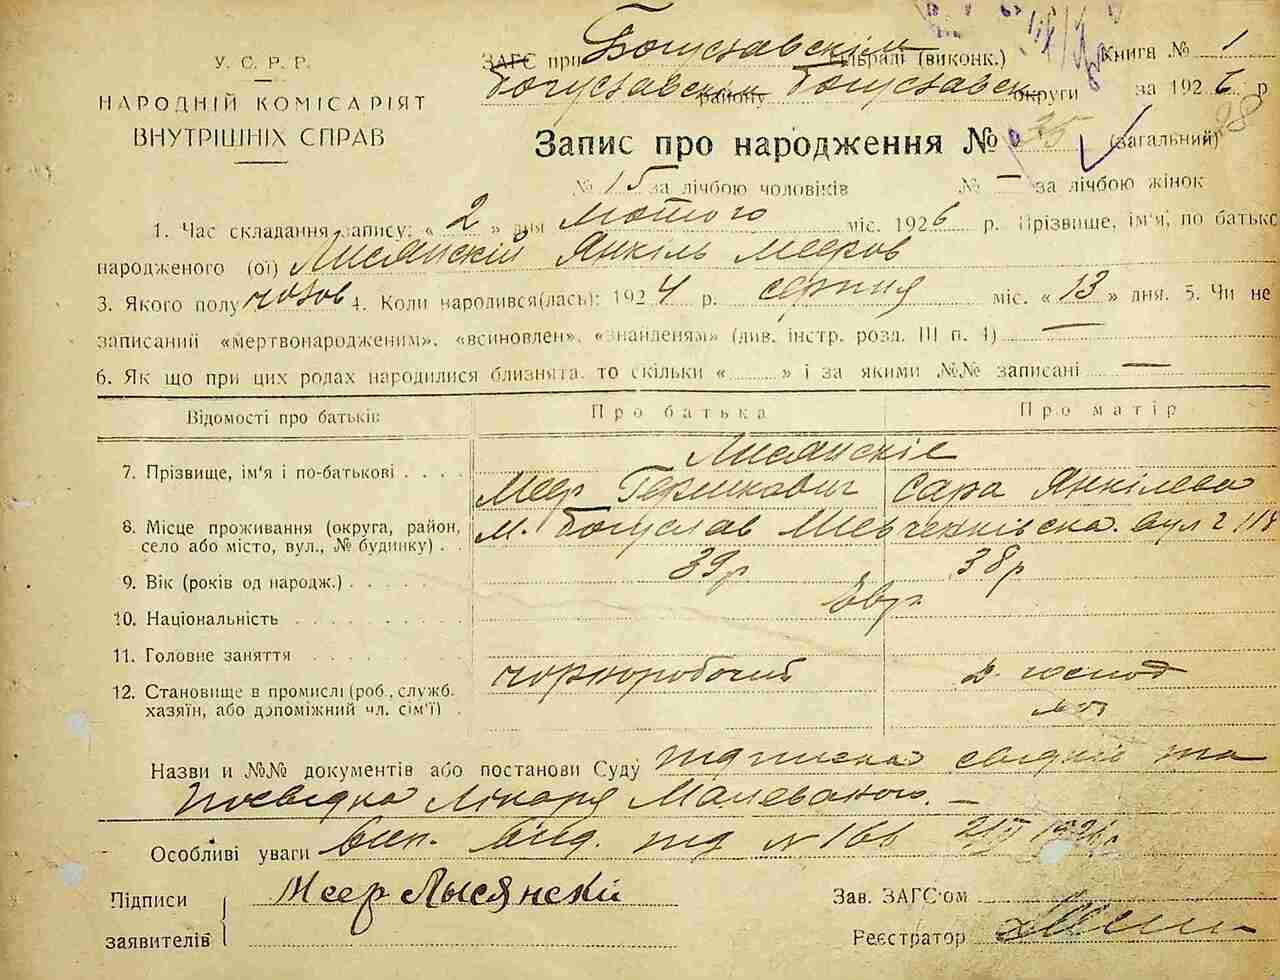 У. С. Р. Р.
НАРОДНІЙ КОМІСАРІЯТ
ВНУТРІШНІХ СПРАВ
ЗАГС при Богуславскім (виконк.) Книга № 1
Богуславским району Богуславск округи за 1926 р
Запис про народження № 35 (загальний) 28
№ 15 за лічбою чоловіків № — за лічбою жінок
1. Час складання запису: « 2 » дня лютого міс. 1926 р. Прізвище, ім'я, по батько
народженого (ої) Лисянскій Янкіль Меєров
3. Якого полу чолов 4. Коли народився(лась): 1924 р. серпня міс. « 13 » дня. 5. Чи не
записаний «мертвонародженим», «всиновлен», «знайденям» (див. інстр. розд. III п. 4) —
6. Як що при цих родах народилися близнята, то скільки « » і за якими №№ записані —
Відомості про батьків Про батька Про матір
7. Прізвище, ім'я і по-батькові Лисянскіє
Меєр Гершкович Сара Янкілева
8. Місце проживання (округа, район, село або місто, вул., № будинку) м. Богуслав Шевченківска вул
9. Вік (років од народж.) 39р 38р
10. Національність Евр.
11. Головне заняття
12. Становище в промислі (роб., служб. хазяїн, або допоміжний чл. сім'ї) чорноробочий д. господ
Назви и №№ документів або постанови Суду підписка свідків та
посвідка Лікаря Малеваного. —
Особливі уваги вип. від. під № 166
Підписи Меер Лысянский Зав. ЗАГС'ом
заявителів Реєстратор